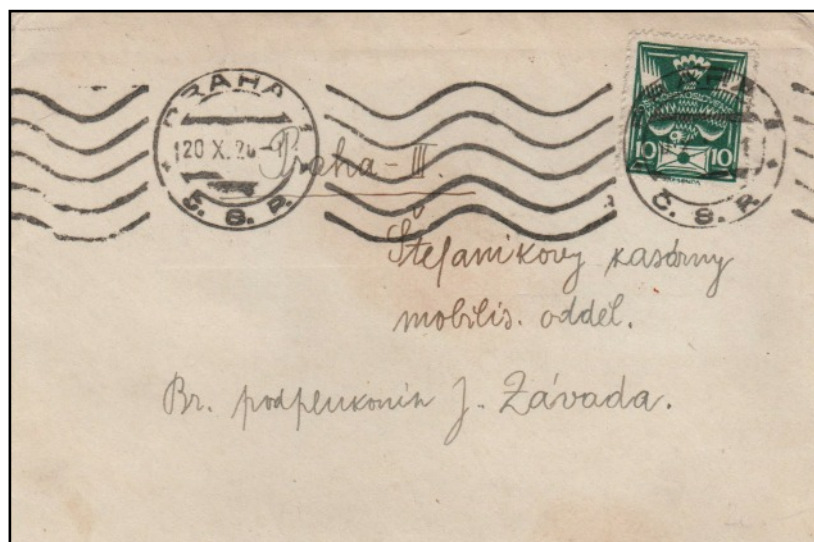 PRAHA 1
20 X. 2
Č. S. R.
10 10
1
Č. S. R.
Praha - III.
Štefanikovy kasárny
mobilis. odděl.
Br. podplukovník J. Závada.